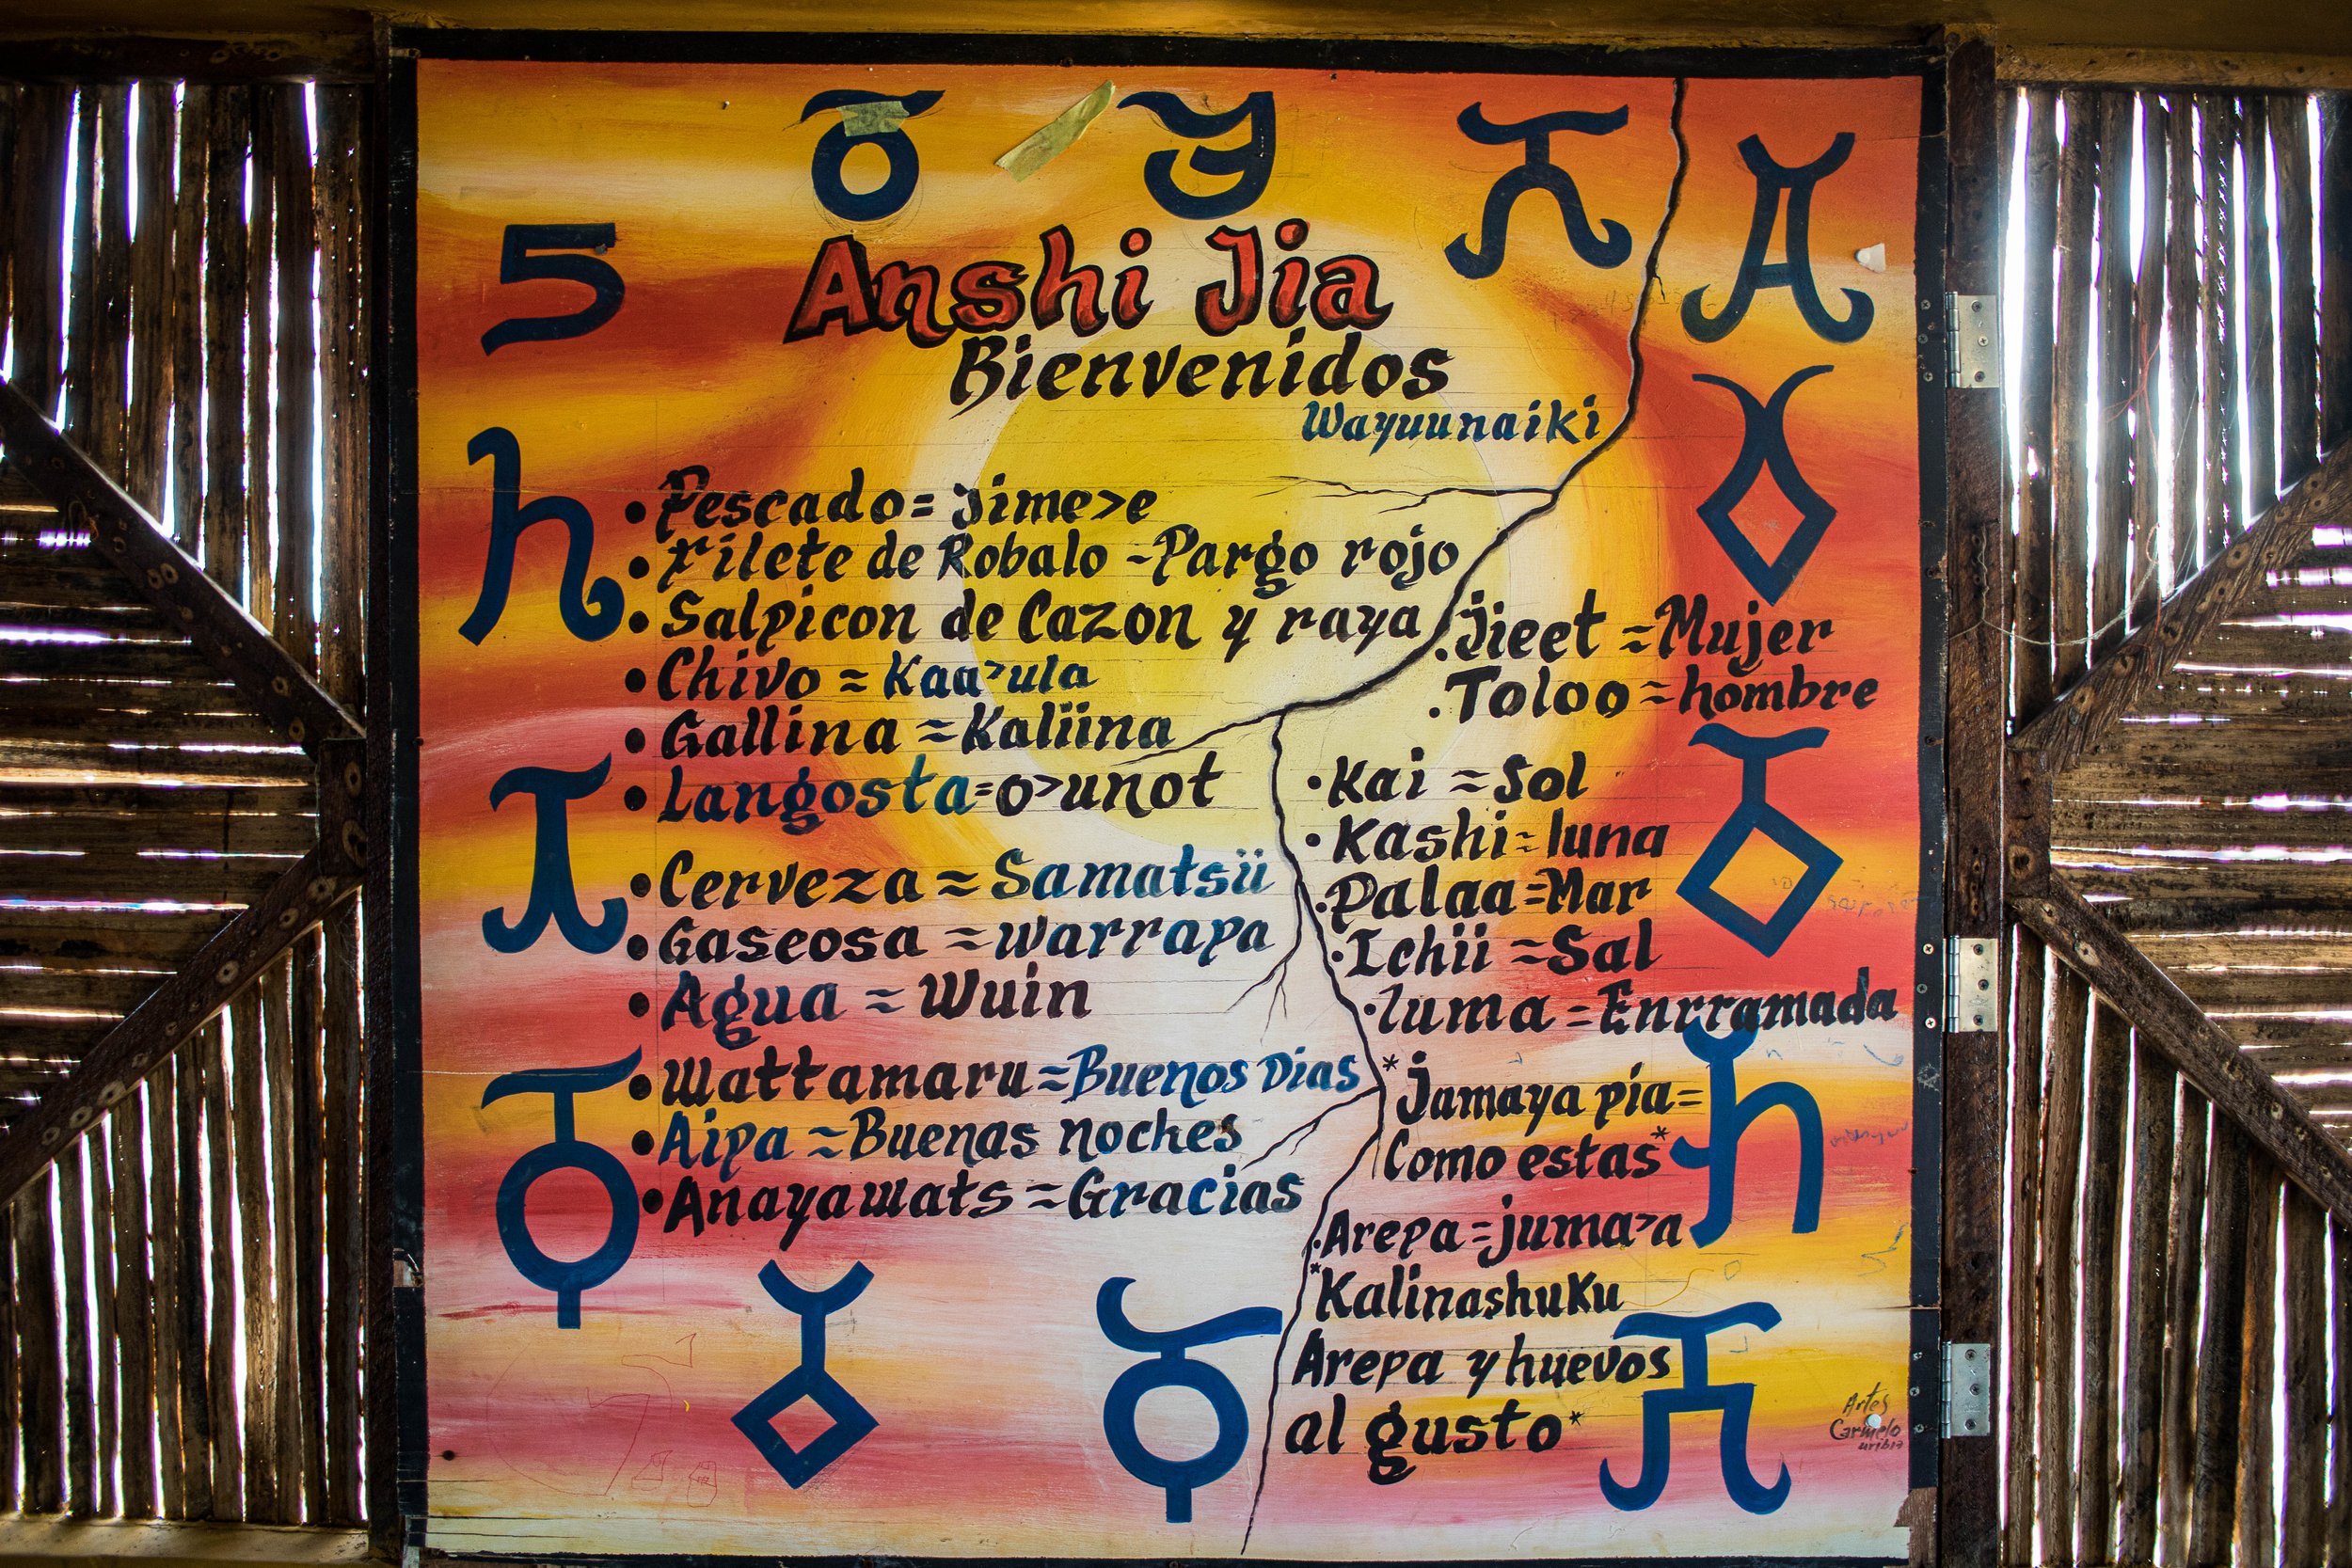 Anshi Jia
Bienvenidos
Wayuunaiki
•Pescado= jime>e
•Filete de Robalo -Pargo rojo
•Salpicon de Cazon y raya
•Chivo = Kaa>ula
•Gallina =Kaliina
•Langosta=o>unot
•Cerveza = Samatsüi
•Gaseosa =warrapa
•Agua = Wuin
•Wattamaru=Buenos Dias
•Aipa =Buenas noches
•Anayawats =Gracias
.Jieet =Mujer
.Toloo =hombre
•Kai =Sol
•Kashi=luna
.Palaa=Mar
•Ichii =Sal
•luma =Enrramada
*Jamaya pia=
Como estas*
.Arepa=juma>a
*Kalinashuku
Arepa y huevos
al gusto*
Artes
Carmelo
uribia